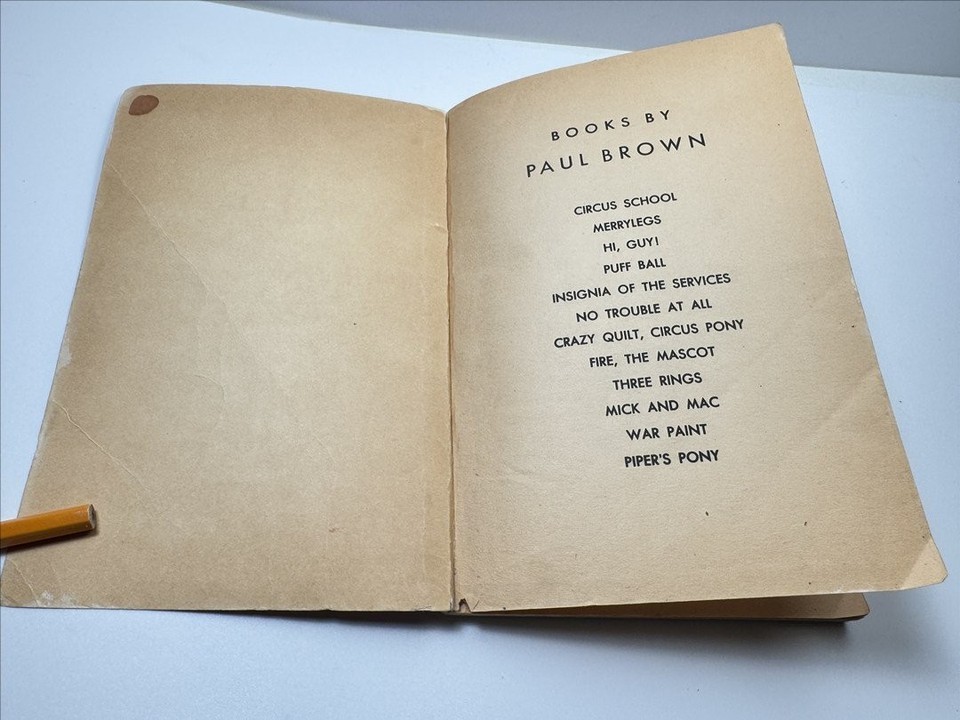 BOOKS BY
PAUL BROWN
CIRCUS SCHOOL
MERRYLEGS
HI, GUY!
PUFF BALL
INSIGNIA OF THE SERVICES
NO TROUBLE AT ALL
CRAZY QUILT, CIRCUS PONY
FIRE, THE MASCOT
THREE RINGS
MICK AND MAC
WAR PAINT
PIPER'S PONY